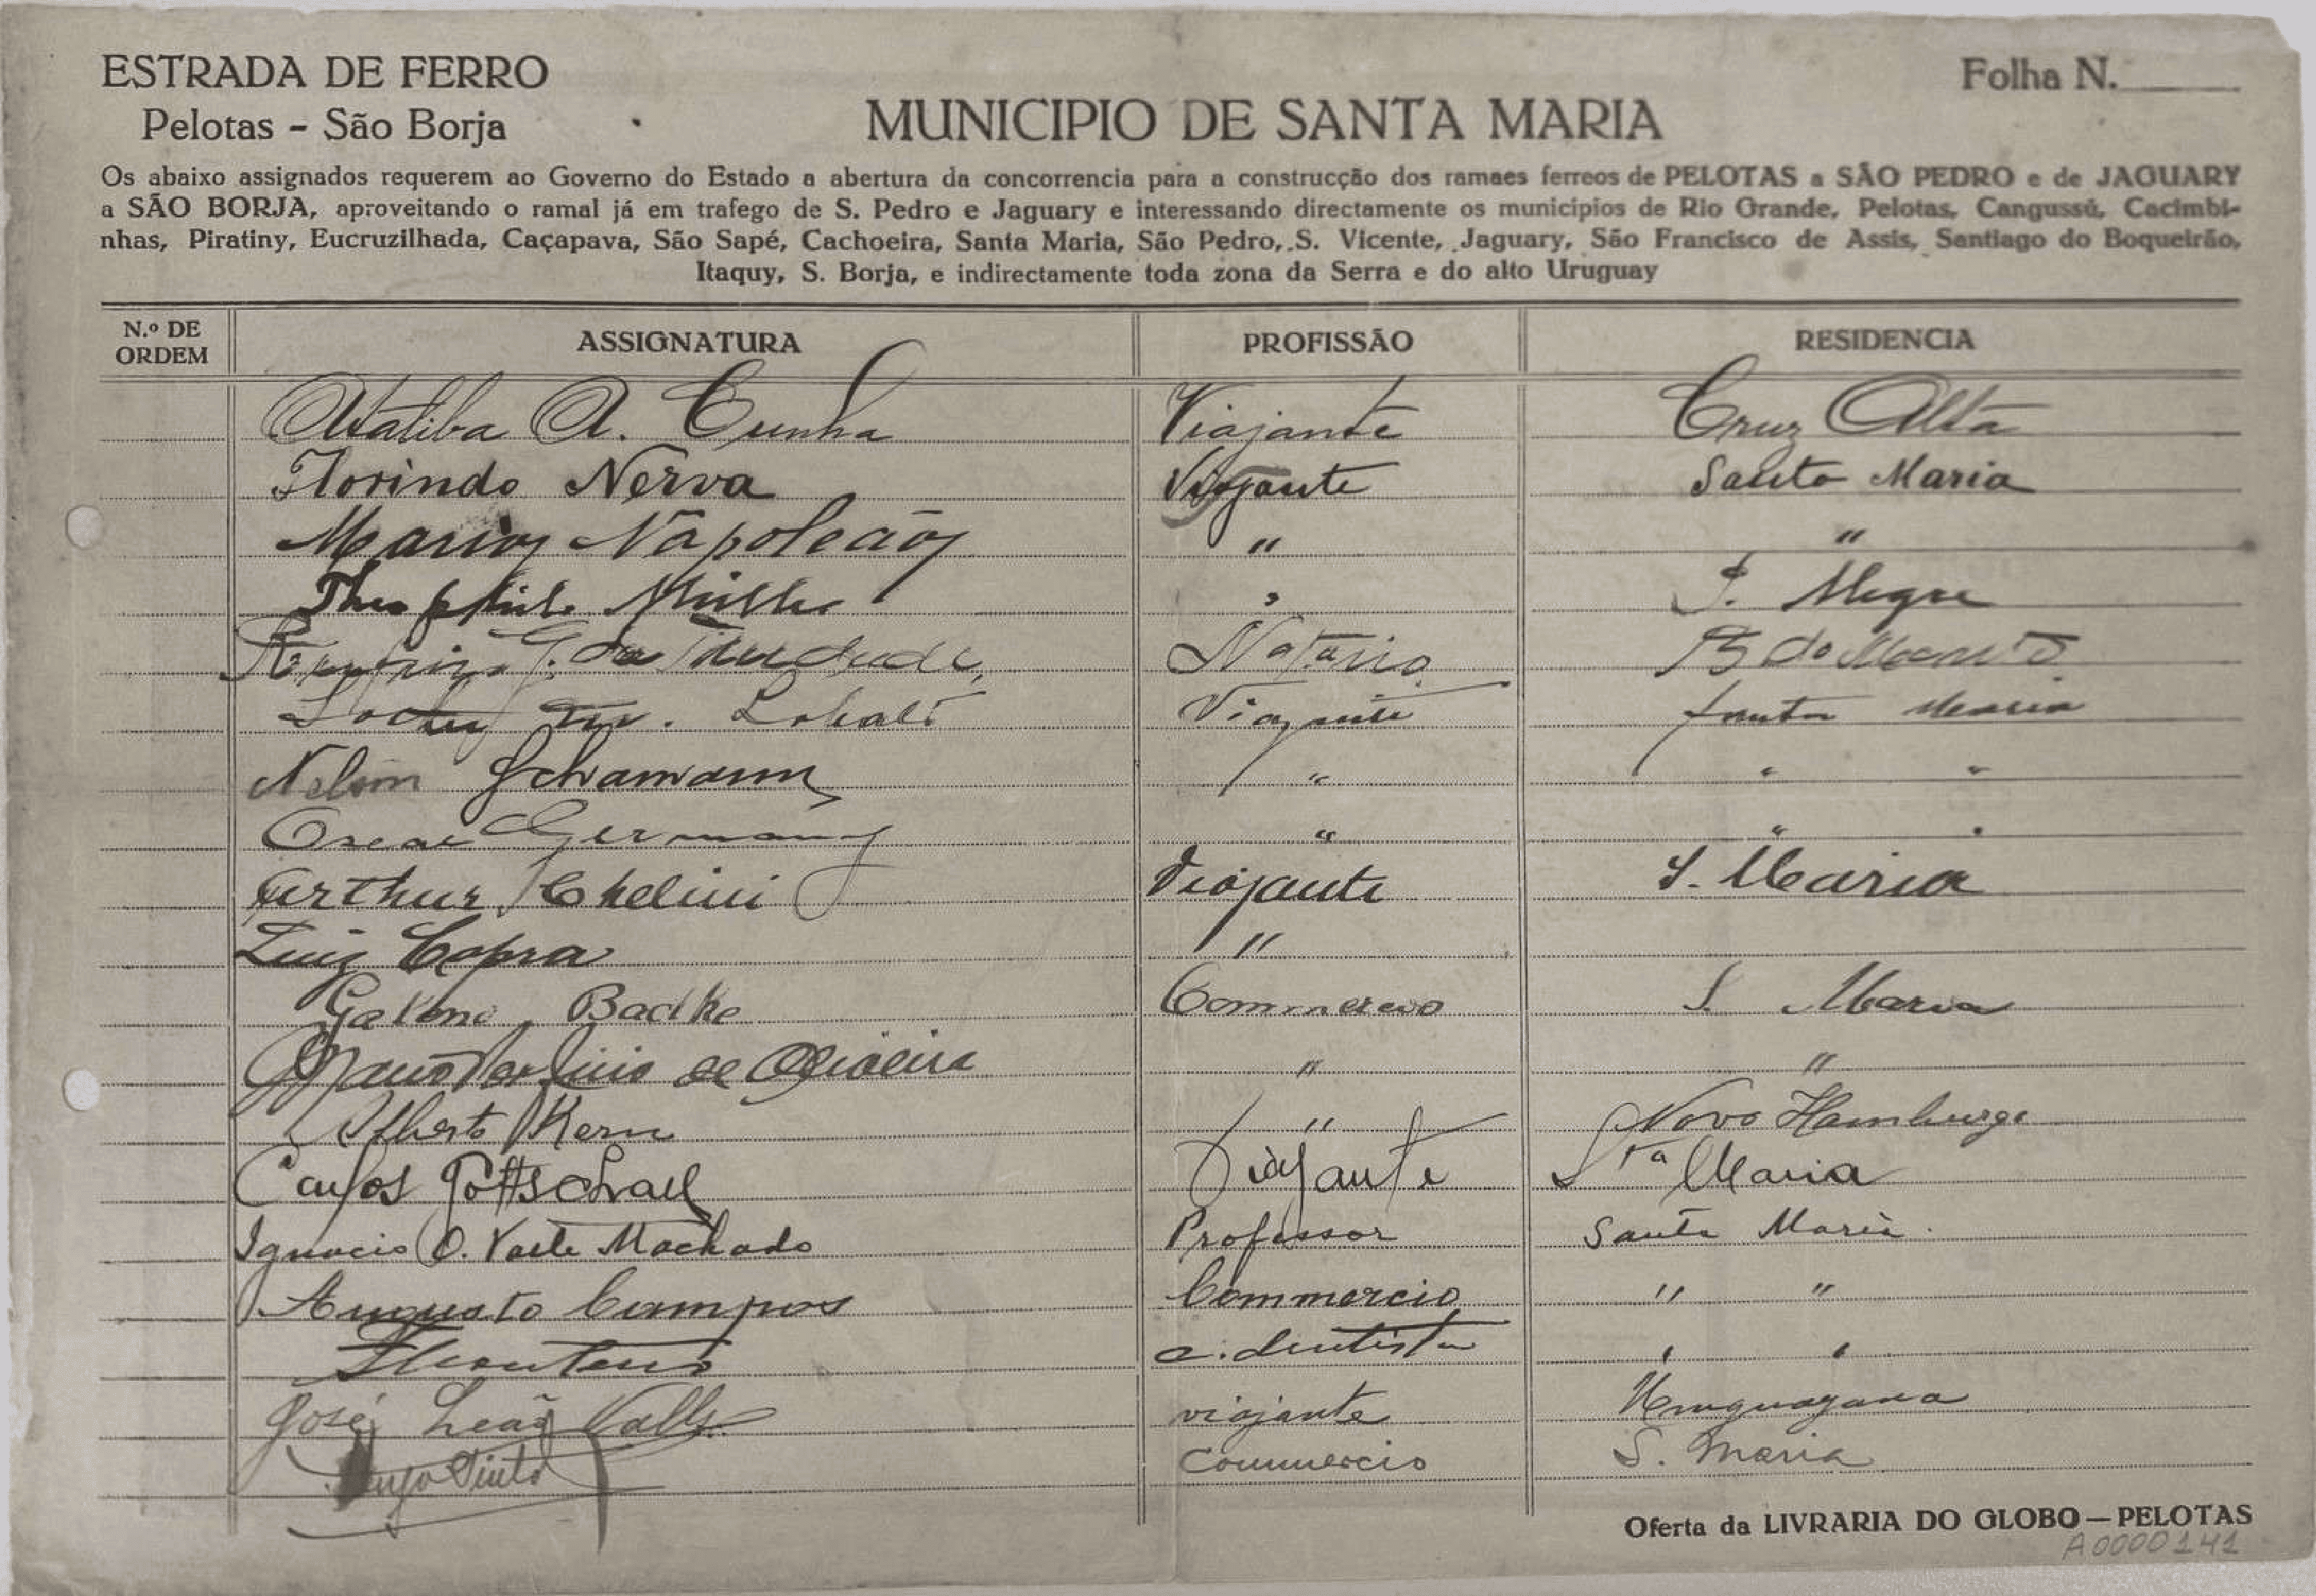 ESTRADA DE FERRO
Pelotas - São Borja
Folha N.
MUNICIPIO DE SANTA MARIA
Os abaixo assignados requerem ao Governo do Estado a abertura da concorrencia para a construcção dos ramaes ferreos de PELOTAS a SÃO PEDRO e de JAGUARY
a SÃO BORJA, aproveitando o ramal já em trafego de S. Pedro e Jaguary e interessando directamente os municipios de Rio Grande, Pelotas, Cangussú, Cacimbi-
nhas, Piratiny, Eucruzilhada, Caçapava, São Sapé, Cachoeira, Santa Maria, São Pedro, S. Vicente, Jaguary, São Francisco de Assis, Santiago do Boqueirão,
Itaquy, S. Borja, e indirectamente toda zona da Serra e do alto Uruguay
N.º DE ORDEM ASSIGNATURA PROFISSÃO RESIDENCIA
Ataliba A. Cunha Viajante Cruz Alta
Florindo Nerva Viajante Santa Maria
Mario Napoleão " "
Müller " P. Alegre
G. da Notario
Viajante Santa Maria
Nelson Schamann " " "
Oscar Germany " " "
Arthur Chelini Viajante S. Maria
Luiz Copra "
Badke Commercio S. Maria
de Oliveira " "
Alberto Kern " Novo Hamburgo
Carlos Gottschall Viajante Sta Maria
Ignacio O. Valle Machado Professor Santa Maria
Augusto Campos Commercio " "
c. dentista " "
José Leão Valls viajante Uruguayana
Pinto Commercio S. Maria
Oferta da LIVRARIA DO GLOBO — PELOTAS
A0000141